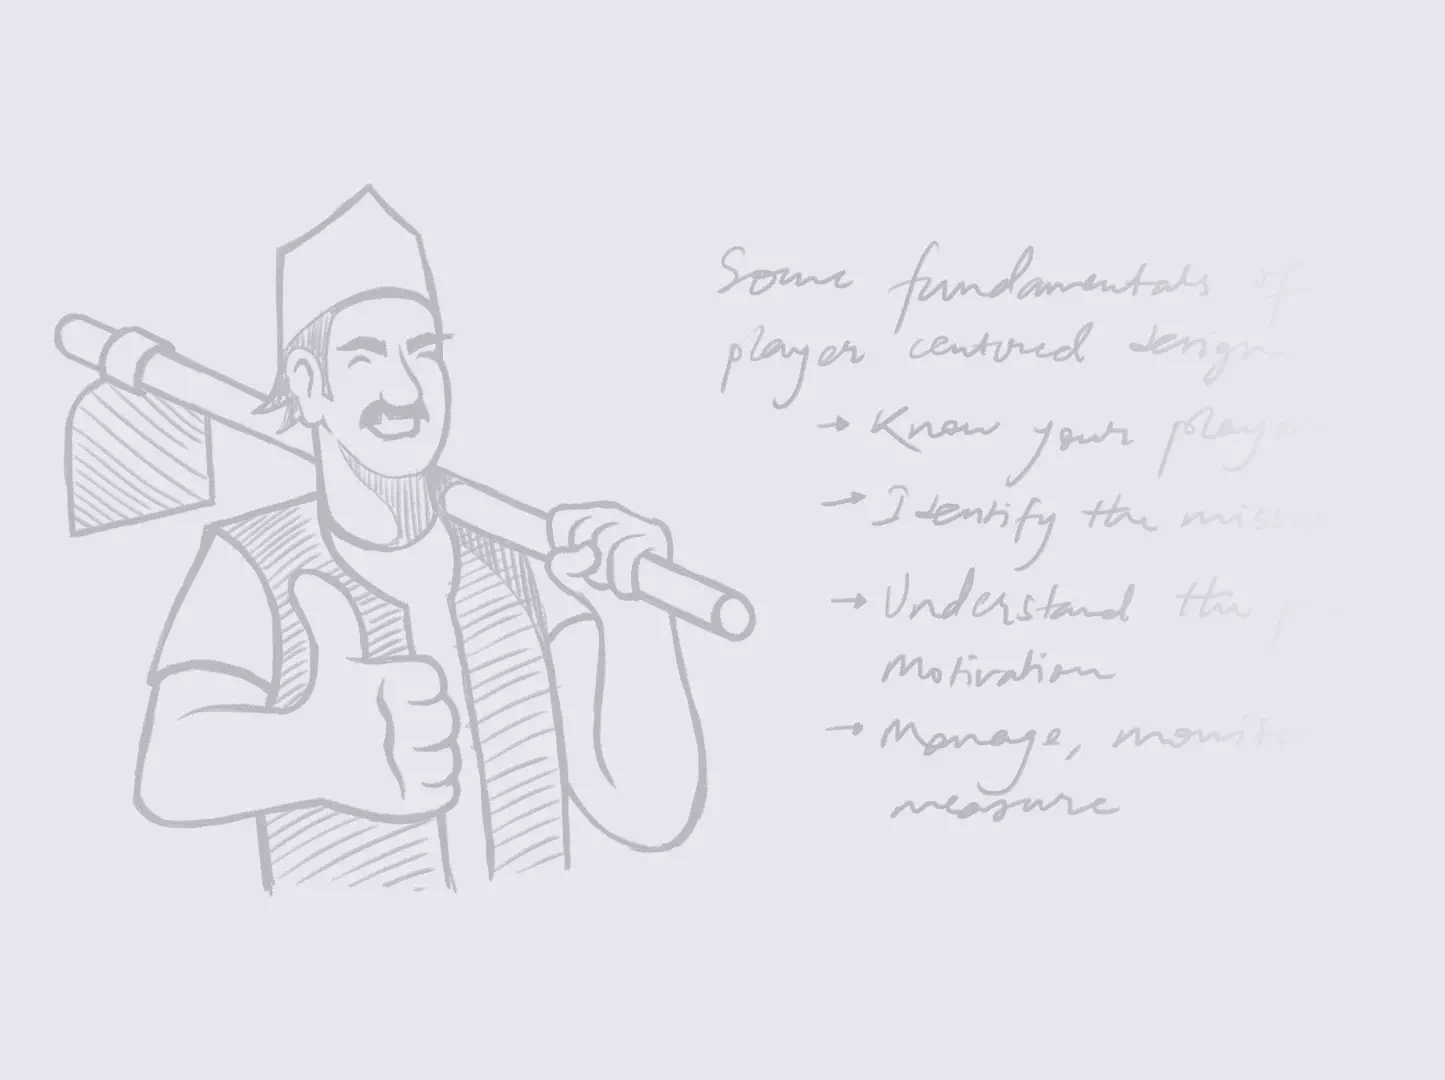 Some fundamentals of
player centered design
→ Know your player
→ Identify the missi
→ Understand the p
Motivation
→ Manage, monit
measure